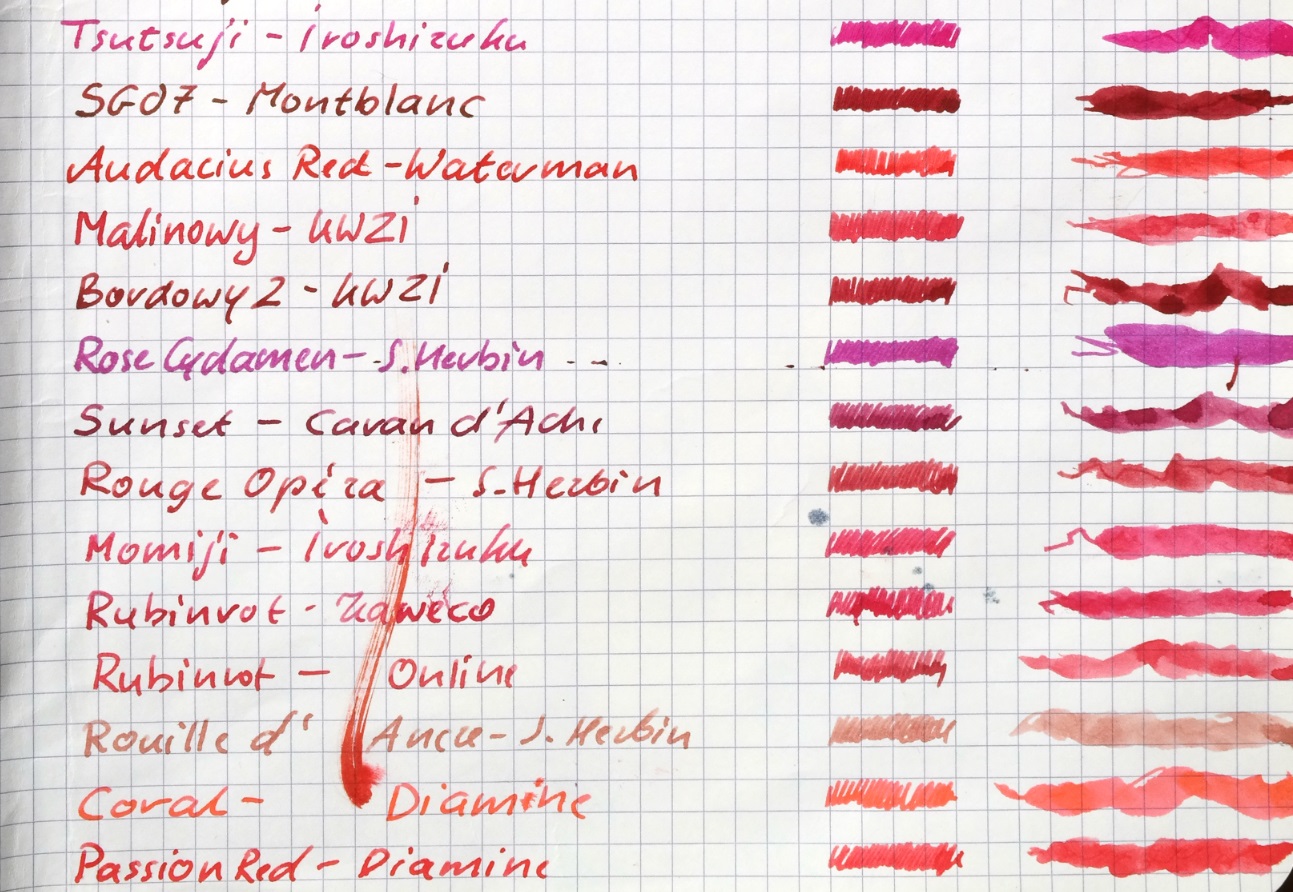 Tsutsuji - iroshizuku
SG07 - Montblanc
Audacius Red - Waterman
Malinowy - KWZI
Bordowy 2 - KWZI
Rose Cyclamen - J. Herbin
Sunset - Caran d'Ache
Rouge Opéra - J. Herbin
Momiji - iroshizuku
Rubinrot - Kaweco
Rubinrot - Online
Rouille d' Ancre - J. Herbin
Coral - Diamine
Passion Red - Diamine